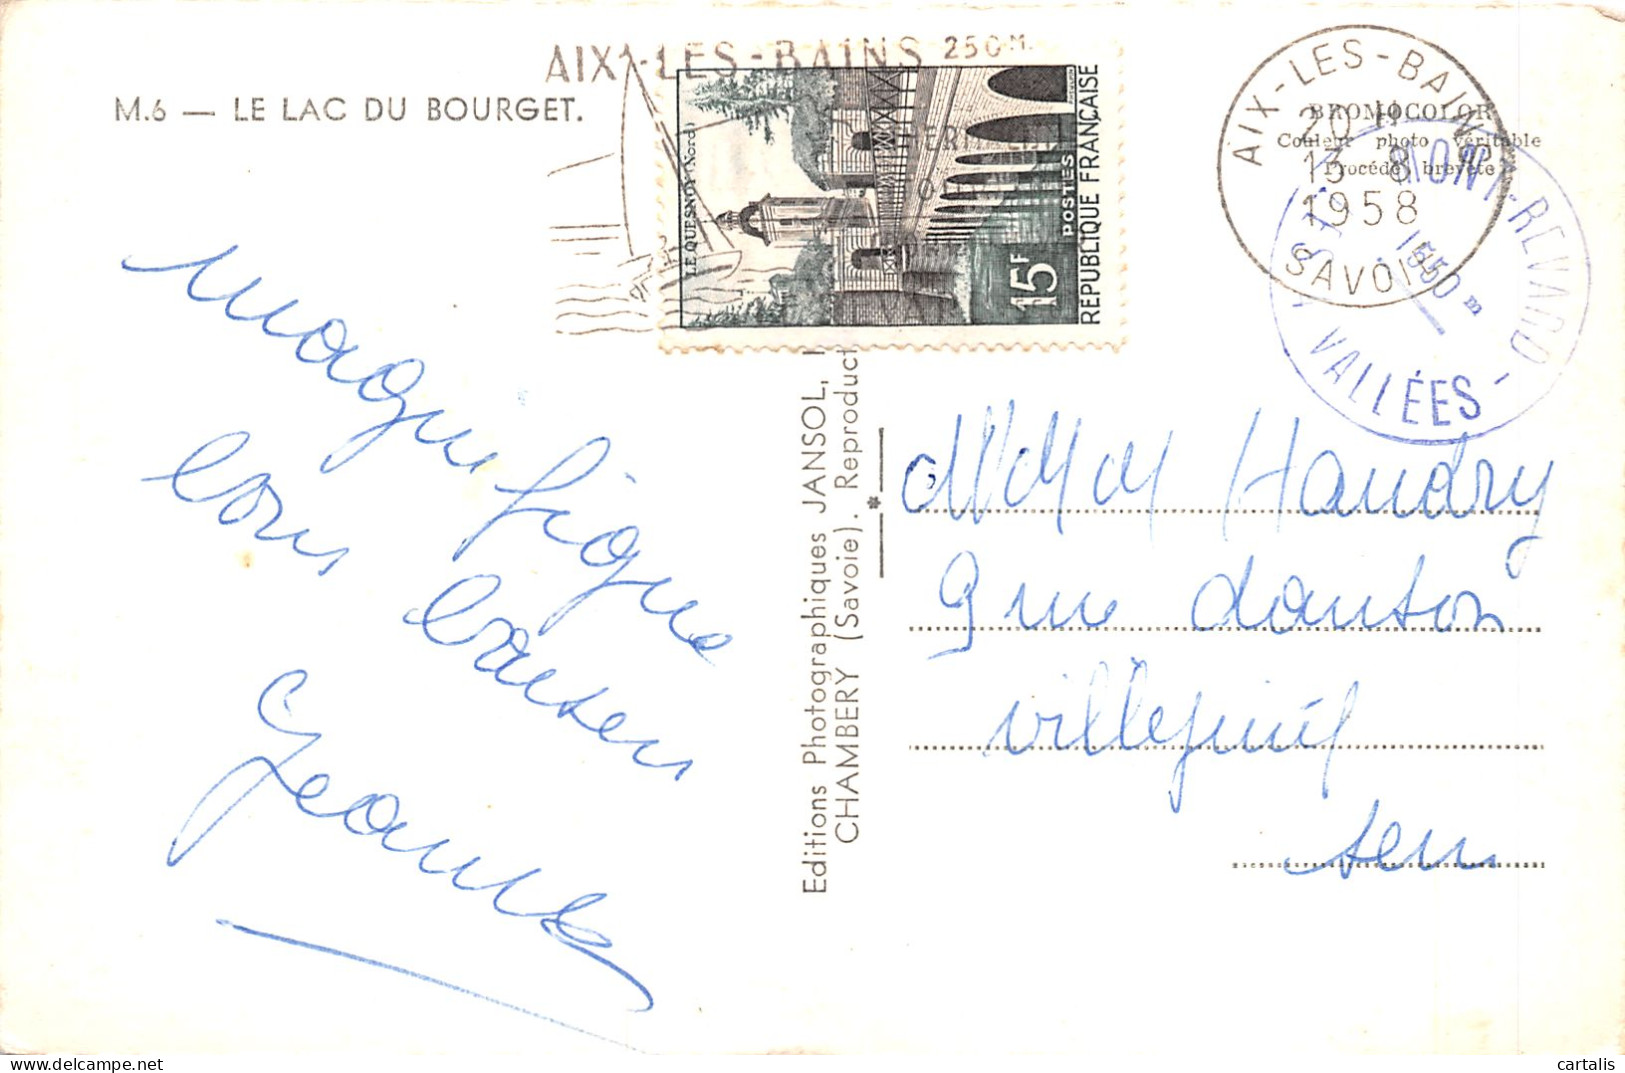 AIX-LES-BAINS 250 M.
M.6 — LE LAC DU BOURGET.
LE QUESNOY (Nord)
15F
POSTES
REPUBLIQUE FRANÇAISE
AIX-LES-BAINS
20 H
13 - 8
1958
SAVOIE
BROMOCOLOR
Couleur photo véritable
Procédé breveté
MONT-REVARD -
1550 m
VALLÉES -
magnifique
bons baisers
Editions Photographiques JANSOL,
CHAMBERY (Savoie). Reproduct
*
Haudry
9 rue danton
villejuif
seine
cartalis